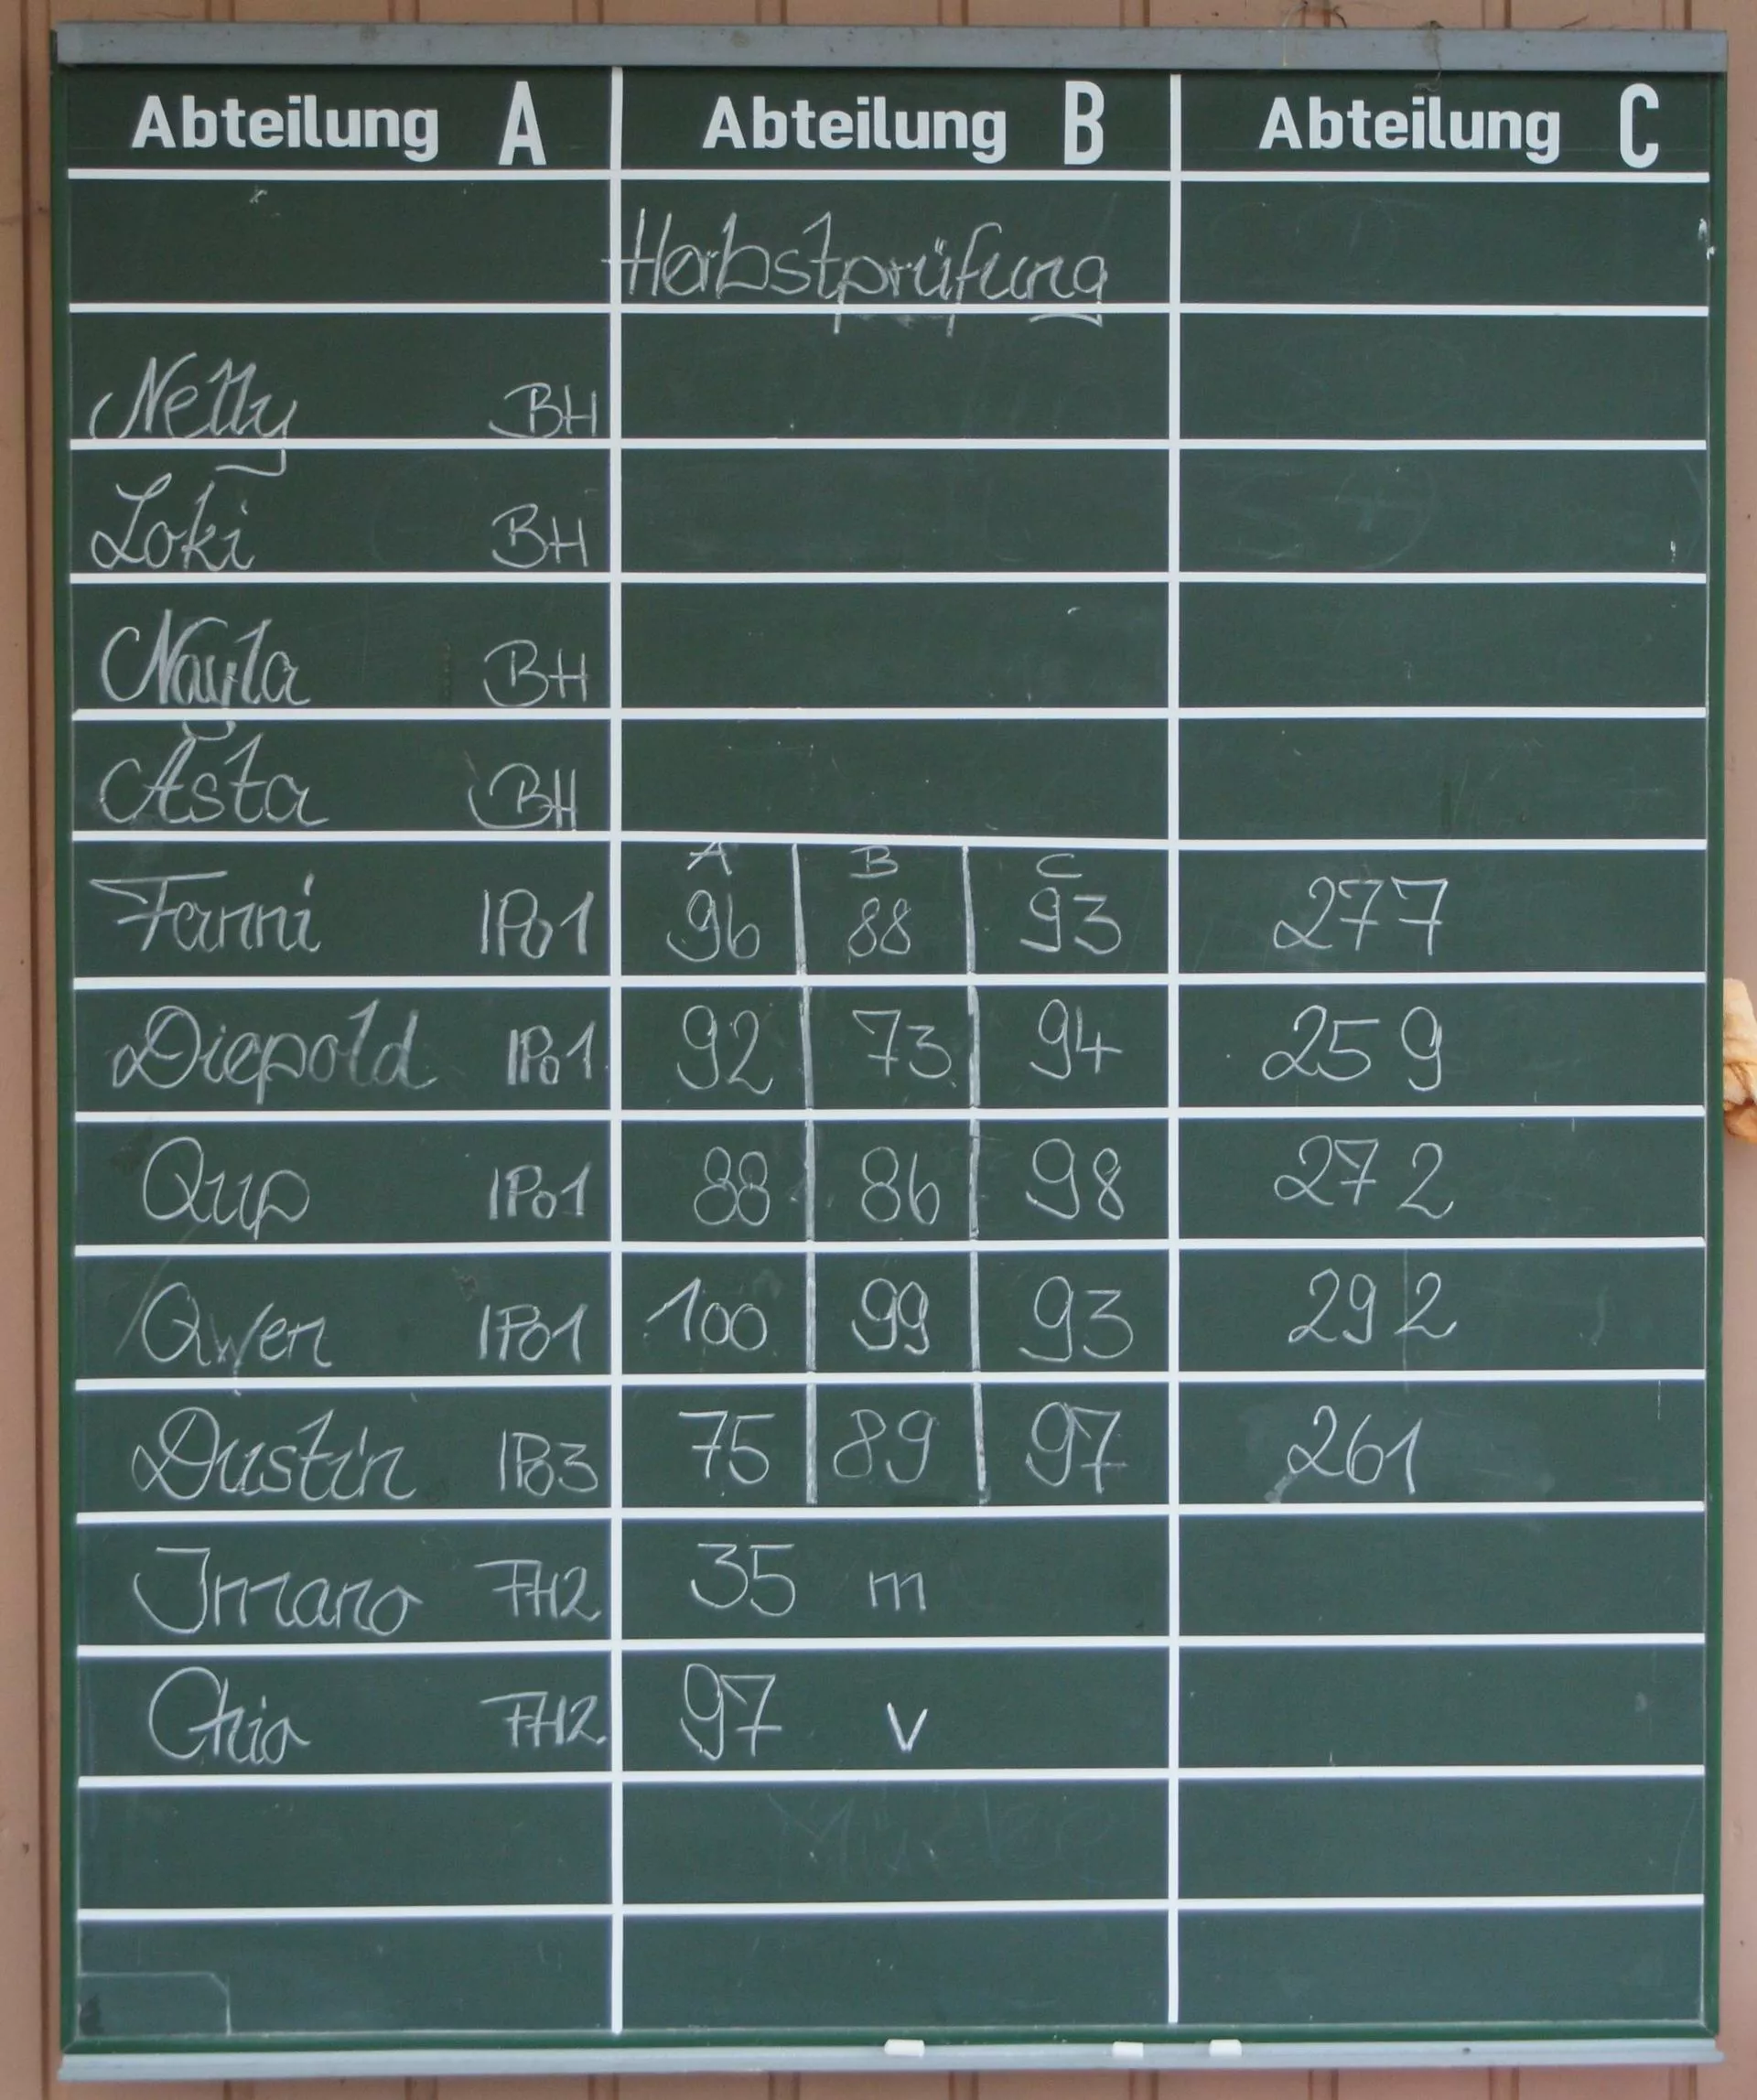 Abteilung A Abteilung B Abteilung C
Herbstprüfung
Nelly BH
Loki BH
Nayla BH
Asta BH
A B C
Fanni IPo1 96 88 93 277
Diepold IPo1 92 73 94 259
Qup IPo1 88 86 98 272
Qwen IPo1 100 99 93 292
Dustin IPo3 75 89 97 261
FH2 35 m
FH2 97 v